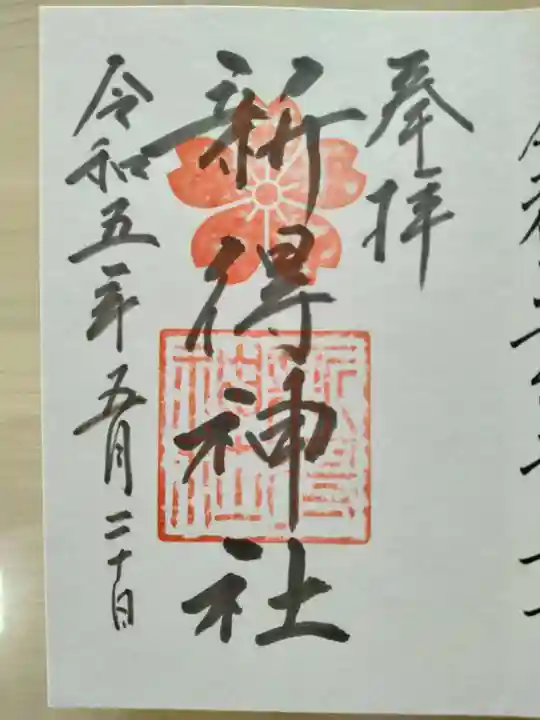 奉拝
新得神社
令和五年五月二十日